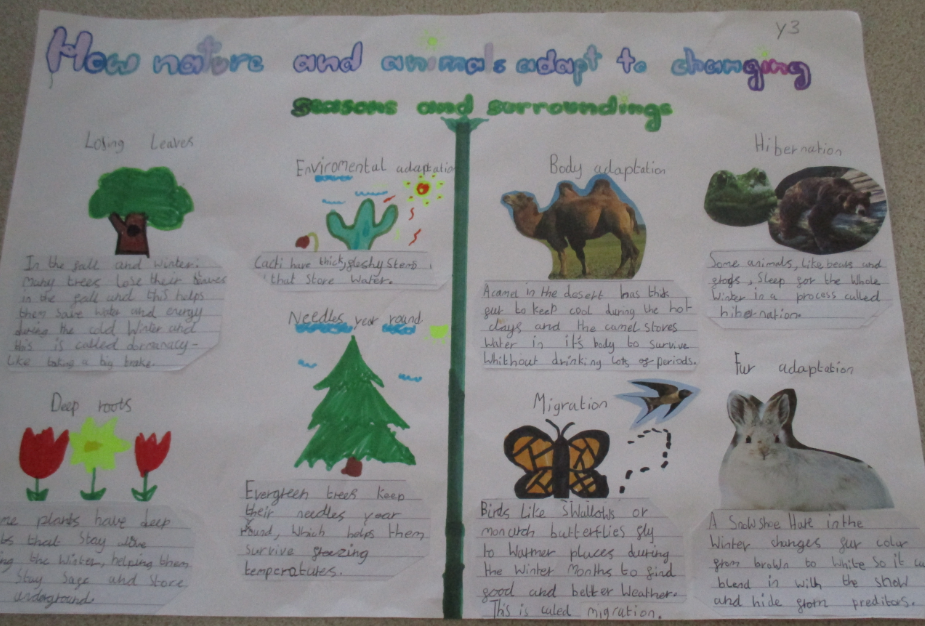 Y3
How nature and animals adapt to changing
seasons and surroundings
Losing Leaves
In the fall and winter.
Many trees lose their leaves
in the fall and this helps
them save water and energy
during the cold winter and
this is called dormanacy-
like taking a big brake.
Deep roots
plants have deep
that stay alive
the winter, helping them
Stay safe and store
underground.
Enviromental adaptation
Cacti have thick, glushy stems,
that store water.
Needles year round
Evergreen trees keep
their needles year
round, which helps them
survive freezing
temperatures.
Body adaptation
A camel in the desert has thick
fur to keep cool during the hot
days and the camel stores
water in it's body to survive
whithout drinking lots of periods.
Migration
Birds like swallows or
monarch butterflies fly
to warmer places during
the winter months to find
good and better weather.
This is called migration.
Hibernation
Some animals, like bears and
frogs, sleep for the whole
winter in a process called
hibernation.
Fur adaptation
A Snowshoe Hare in the
winter changes fur color
from brown to white so it
blend in with the snow
and hide from preditors.